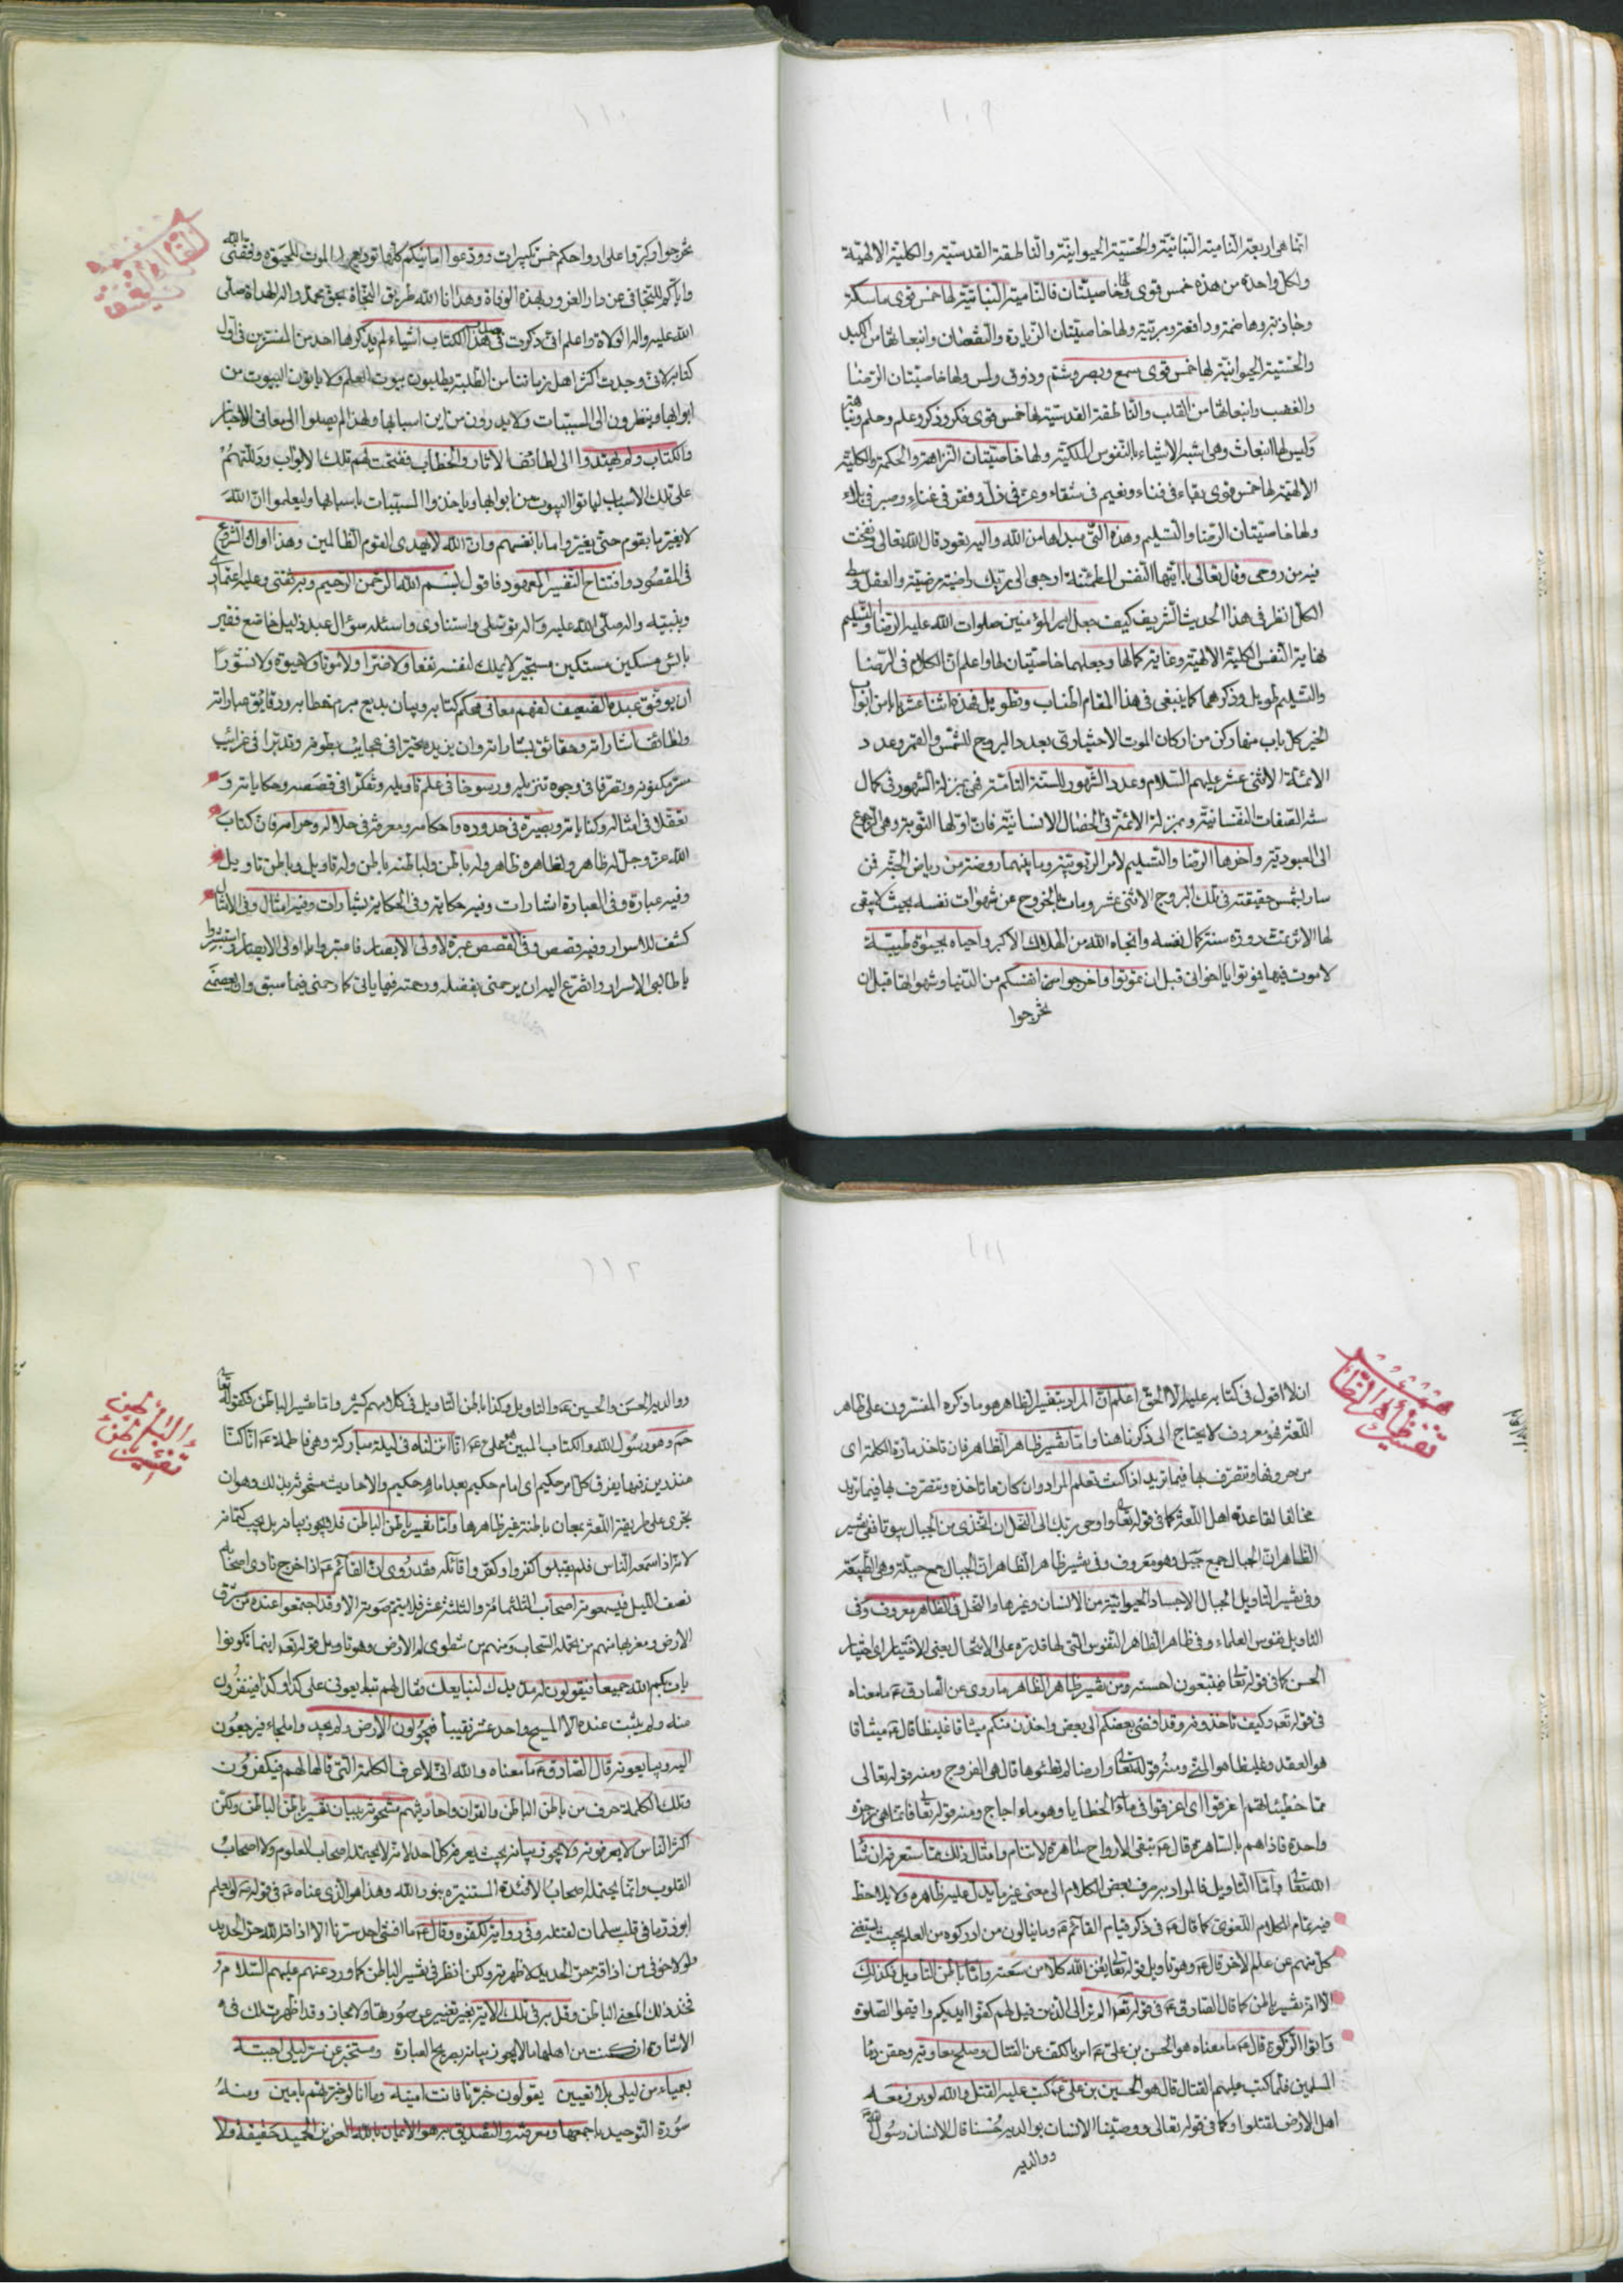 ١٠٩
انما هی اربعة النامية النباتية والحسّية الحيوانيّة والناطقة القدسيّة والكلية الالهيّة
ولكل واحدة من هذه خمس قوى ولها خاصيتان فالنامية النباتية لها خمس قوى ماسكة
وجاذبة وهاضمة ودافعة ومربّية ولها خاصيتان الزيادة والنقصان وانبعاثها من الكبد
والحسّية الحيوانية لها خمس قوى سمع وبصر وشم وذوق ولمس ولها خاصيتان الرضا
والغضب وانبعاثها من القلب والناطقة القدسية لها خمس قوى فكر وذكر وعلم وحلم ونباهة
وليس لها انبعاث وهی اشبه الاشياء بالنفوس الملكية ولها خاصيتان النزاهة والحكمة والكلية
الالهية لها خمس قوى بقاء فی فناء ونعيم فی شقاء وعز فی ذل وفقر فی غناء وصبر فی بلاء
ولها خاصيتان الرضا والتسليم وهذه التی مبداها من الله واليه يعود قال الله تعالى ونفخت
فيه من روحی وقال تعالى يا ايتها النفس المطمئنة ارجعی الى ربك راضية مرضية والعقل وسط
الكل انظر فی هذا الحديث الشريف كيف جعل امير المؤمنين صلوات الله عليه الرضا والتسليم
نهاية النفس الكلية الالهية وغاية كمالها وجعلهما خاصيتان لها واعلم ان الكلام فی الرضا
والتسليم طويل وذكرهما كما ينبغی فی هذا المقام اطناب وتطويل فهذه اثنا عشر بابا من ابواب
الخير كل باب منها ركن من اركان الموت الاختياری بعدد البروج للشمس والقمر وعدد
الائمة الاثنی عشر عليهم السلام وعدد الشهور للسنة التامة فهی بمنزلة الشهور فی كمال
سنة الصفات النفسانية وبمنزلة الائمة فی الخصال الانسانية فان اولها التوبة وهی الرجوع
الى العبودية وآخرها الرضا والتسليم لامر الربوبية وما بينهما روضة من رياض الجنة فمن
سار لشمس حقيقته فی تلك البروج الاثنی عشر ومات بالخروج عن شهوات نفسه بحيث لا يبقى
لها الاثر تمت دورة سنة كمال نفسه وانجاه الله من الهلاك الاكبر واحياه بحيوة طيبة
لا موت فيها فموتوا يا اخوانی قبل ان تموتوا واخرجوا انفسكم من الدنيا وشهواتها قبل ان
تخرجوا
١١٠
تخرجوا وكبّروا على ارواحكم خمس تكبيرات وودعوا امانيكم كلها توديع الموت للحيوة وفقنی الله
واياكم للتجافی عن دار الغرور بهذه الوفاة وهدانا الله طريق النجاة بحق محمد واله الهداة صلى
الله عليه واله الولاة واعلم انی ذكرت فی هذا الكتاب اشياء لم يذكرها احد من المفسرين فی اول
كتابه لانی وجدت اكثر اهل زماننا من الطلبة يطلبون بيوت العلم ولا ياتون البيوت من
ابوابها وينظرون الى المسببات ولا يدرون من اين اسبابها ولهذا لم يصلوا الى معانی الاخبار
والكتاب ولم يهتدوا الى لطائف الاثار والخطاب ففتحت لهم تلك الابواب ودللتهم
على تلك الاسباب لياتوا البيوت من ابوابها وياخذوا المسببات باسبابها وليعلموا ان الله
لا يغير ما بقوم حتى يغيروا ما بانفسهم وان الله لا يهدی القوم الظالمين وهذا اوان الشروع
فی المقصود وافتتاح التفسير المعهود فاقول بسم الله الرحمن الرحيم وبه ثقتی وعليه اعتمادی
وبنبيه واله صلى الله عليه واله توسلی واستنادی واسئله سؤال عبد ذليل خاضع فقير
بائس مسكين مستكين مستجير لا يملك لنفسه نفعا ولا ضرا ولا موتا ولا حيوة ولا نشورا
ان يوفق عبده الضعيف لفهم معانی محكم كتابه وبيان بديع مبرم خطابه ودقايق عباراته
ولطائف اشاراته وحقائق بشاراته وان يزيده تحيرا فی عجايب بطونه وتدبرا فی غرائب
سر مكنونه وتصرفا فی وجوه تنزيله ورسوخا فی علم تاويله وتفكرا فی قصصه وحكاياته و
تعقلا فی امثاله وكناياته وبصيرة فی حدوده واحكامه ومعرفة فی حلاله وحرامه فان كتاب
الله عز وجل له ظاهر ولظاهره ظاهر وله باطن ولباطنه باطن وله تاويل وباطن تاويل
وفيه عبارة وفی العبارة اشارات وفيه حكاية وفی الحكاية بشارات وفيه امثال وفی الامثال
كشف للاسرار وفيه قصص وفی القصص عبرة لاولی الابصار فاعتبروا يا اولی الابصار واستبشروا
يا طالبی الاسرار واتضرع اليه ان يرحمنی بفضله ورحمته فيما ياتی كما رحمنی فيما سبق وان يعصمنی
١١١
تفسير ظاهر الظاهر
ان لا اقول فی كتابه عليه الا الحق اعلم ان المراد بتفسير الظاهر هو ما ذكره المفسرون على ظاهر
اللغة فهو معروف لا يحتاج الى ذكر ما هنا واما تفسير ظاهر الظاهر فان تاخذ مادة الكلمة ای
من حروفها وتتصرف بها فيما تريد اذا كنت تعلم المراد وان كان ما تاخذه وتتصرف بها فيما تريد
مخالفا لقاعدة اهل اللغة كما فی قوله تعالى واوحى ربك الى النحل ان اتخذی من الجبال بيوتا ففی تفسير
الظاهر ان الجبال جمع جبل وهو معروف وفی تفسير ظاهر الظاهر ان الجبال جمع جبلة وهی الطبيعة
وفی تفسير التاويل الجبال الاجساد الحيوانية من الانسان وغيرها والنحل فی الظاهر معروف وفی
التاويل نفوس العلماء وفی ظاهر الظاهر النفوس التی لها قدرة على الانتحال يعنی الاختيار ای اختيار
الحسن كما فی قوله تعالى فيتبعون احسنه ومن تفسير ظاهر الظاهر ما روی عن الصادق ع ما معناه
فی قوله تع وكيف تاخذونه وقد افضى بعضكم الى بعض واخذن منكم ميثاقا غليظا قال ع ميثاقا
هو العقد وغليظا هو المنی ومنه قوله تعالى وارضا لم تطئوها قال هی الفروج ومنه قوله تعالى
مما خطيئاتهم اغرقوا ای اغرقوا فی ماء الخطايا وهو ماء اجاج ومنه قوله تعالى فانما هی زجرة
واحدة فاذا هم بالساهرة قال ع تبقى الارواح ساهرة لا تنام وامثال ذلك مما ستعرف ان شاء
الله تعالى واما التاويل فالمراد به صرف بعض الكلام الى معنى غير ما يدل عليه ظاهره ولا يلاحظ
فيه تمام الكلام اللغوی كما قال ع فی ذكر قيام القائم ع وما ينالون من ادركوه من العلم بحيث يستغنی
كل منهم عن علم الاخر قال ع وهو تاويل قوله تعالى يغن الله كلا من سعته واما باطن التاويل فكذلك
الا انه تفسير باطن كما قال الصادق ع فی قوله تع الم تر الى الذين قيل لهم كفوا ايديكم واقيموا الصلوة
واتوا الزكوة قال ع ما معناه هو الحسن بن علی ع امر بالكف عن القتال وصلح معاوية وحقن دماء
المسلمين فلما كتب عليهم القتال قال هو الحسين بن علی ع كتب عليه القتل والله لو برز معه
اهل الارض لقتلوا وكما فی قوله تعالى ووصينا الانسان بوالديه حسنا قال الانسان رسول الله
ووالديه
١١٢
تفسير الباطن
ووالديه الحسن والحسين ع والتاويل وكذا باطن التاويل فی كلامهم كثير واما تفسير الباطن فكقوله تعالى
حم وهو رسول الله والكتاب المبين هو علی ع انا انزلناه فی ليلة مباركة وهی فاطمة ع انا كنا
منذرين فيها يفرق كل امر حكيم ای امام حكيم بعد امام حكيم والاحاديث مشحونة بذلك وهو ان
يجری على طريقة اللغة بمعان باطنة غير ظاهرها واما تفسير باطن الباطن فلا يجوز بيانه بل يجب كتمانه
لانه اذا سمعه الناس فلم يقبلوا كفروا وكفروا قائله فقد روی ان القائم ع اذا خرج نادى اصحابه
نصف الليل فيسمعونه اصحاب الثلثمائة والثلثة عشر فلا يتم صوته الا وقد اجتمعوا عنده من شرق
الارض ومغربها منهم من يحمله السحاب ومنهم من تطوى له الارض وهو تاويل قوله تع اينما تكونوا
يات بكم الله جميعا فيقولون له مد يدك لنبايعك فقال لهم تبايعونی على كذا وكذا فينفرون
منه ولم يثبت عنده الا المسيح واحد عشر نقيبا فيجولون الارض ولم يجدوا ملجاء فيرجعون
اليه ويبايعونه قال الصادق ع ما معناه والله انی لاعرف الكلمة التی قالها لهم فيكفرون
وتلك الكلمة حرف من باطن الباطن والقران واحاديثهم مشحونة ببيان تفسير باطن الباطن ولكن
اكثر الناس لا يعرفونه ولا يجوز بيانه بحيث يعرفه كل احد لانه لا يحتمله اصحاب العلوم ولا اصحاب
القلوب وانما يحتمله اصحاب الافئدة المستنيرة بنور الله وهذا هو الذی عناه ع فی قوله ع لو يعلم
ابو ذر ما فی قلب سلمان لقتله وفی رواية لكفره وقال ع ما افشى احد سرنا الا اذاقه الله حر الحديد
ولولا خوفی من اذاقة حر الحديد لاظهرته ولكن انظر فی تفسير الباطن كما ورد عنهم عليهم السلام و
خذ ذلك المعنى الباطن وقلبه فی تلك الاية بغير تغيير عن صورتها ولا مجاز وقد اظهرت لك فی
الاشارة ان كنت من اهلها ما لا يجوز بيانه بصريح العبارة ومستخبر عن سر ليلى اجبته
بعمياء من ليلى بلا تعيين يقولون خبرنا فانت امينها وما انا لو خبرتهم بامين ومنه
سورة التوحيد باجمعها ومعرفته والتصديق به هو الايمان بالله العزيز الحميد حقيقة ولا